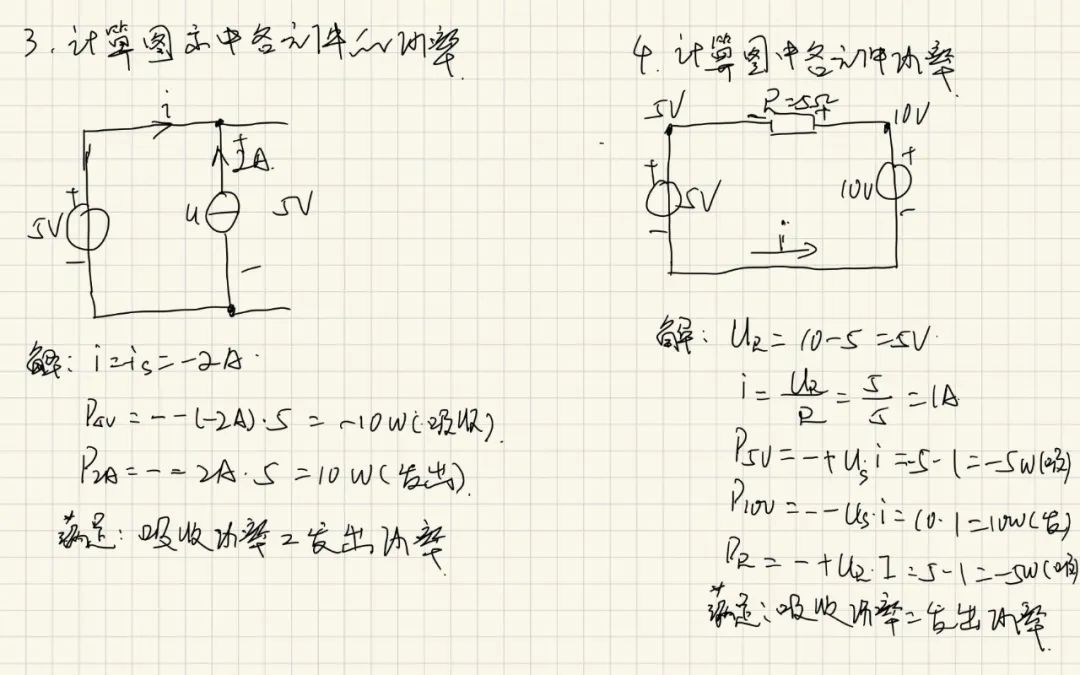 3.计算图示中各元件的功率.
i
+
2A.
5V
u
5V
+
-
-
解: i=is=-2A.
P5V = --(-2A)·5 = -10W(吸收).
P2A = -- 2A·5 =10W(发出).
满足: 吸收功率=发出功率
4.计算图中各元件功率.
5V
R=5Ω
10V
+
5V
-
10V
+
-
i
解: UR = 10-5 =5V.
i = UR/R = 5/5 =1A
P5V = -+Us i = -5·1 = -5W(吸)
P10V = --Us·i = 10·1=10W(发)
PR = -+UR·I = 5-1 = -5W(吸)
满足:吸收功率=发出功率.